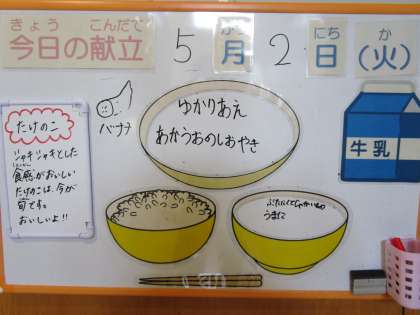 きょう こんだて
今日の献立 5月2日(火)
がつ にち か
バナナ
ゆかりあえ
あかうおのしおやき
牛乳
たけのこ
シャキシャキとした
食感がおいしい
たけのこは、今が
旬ですね
おいしいよ!!
ぶたにくとじゃがいもの
うまに